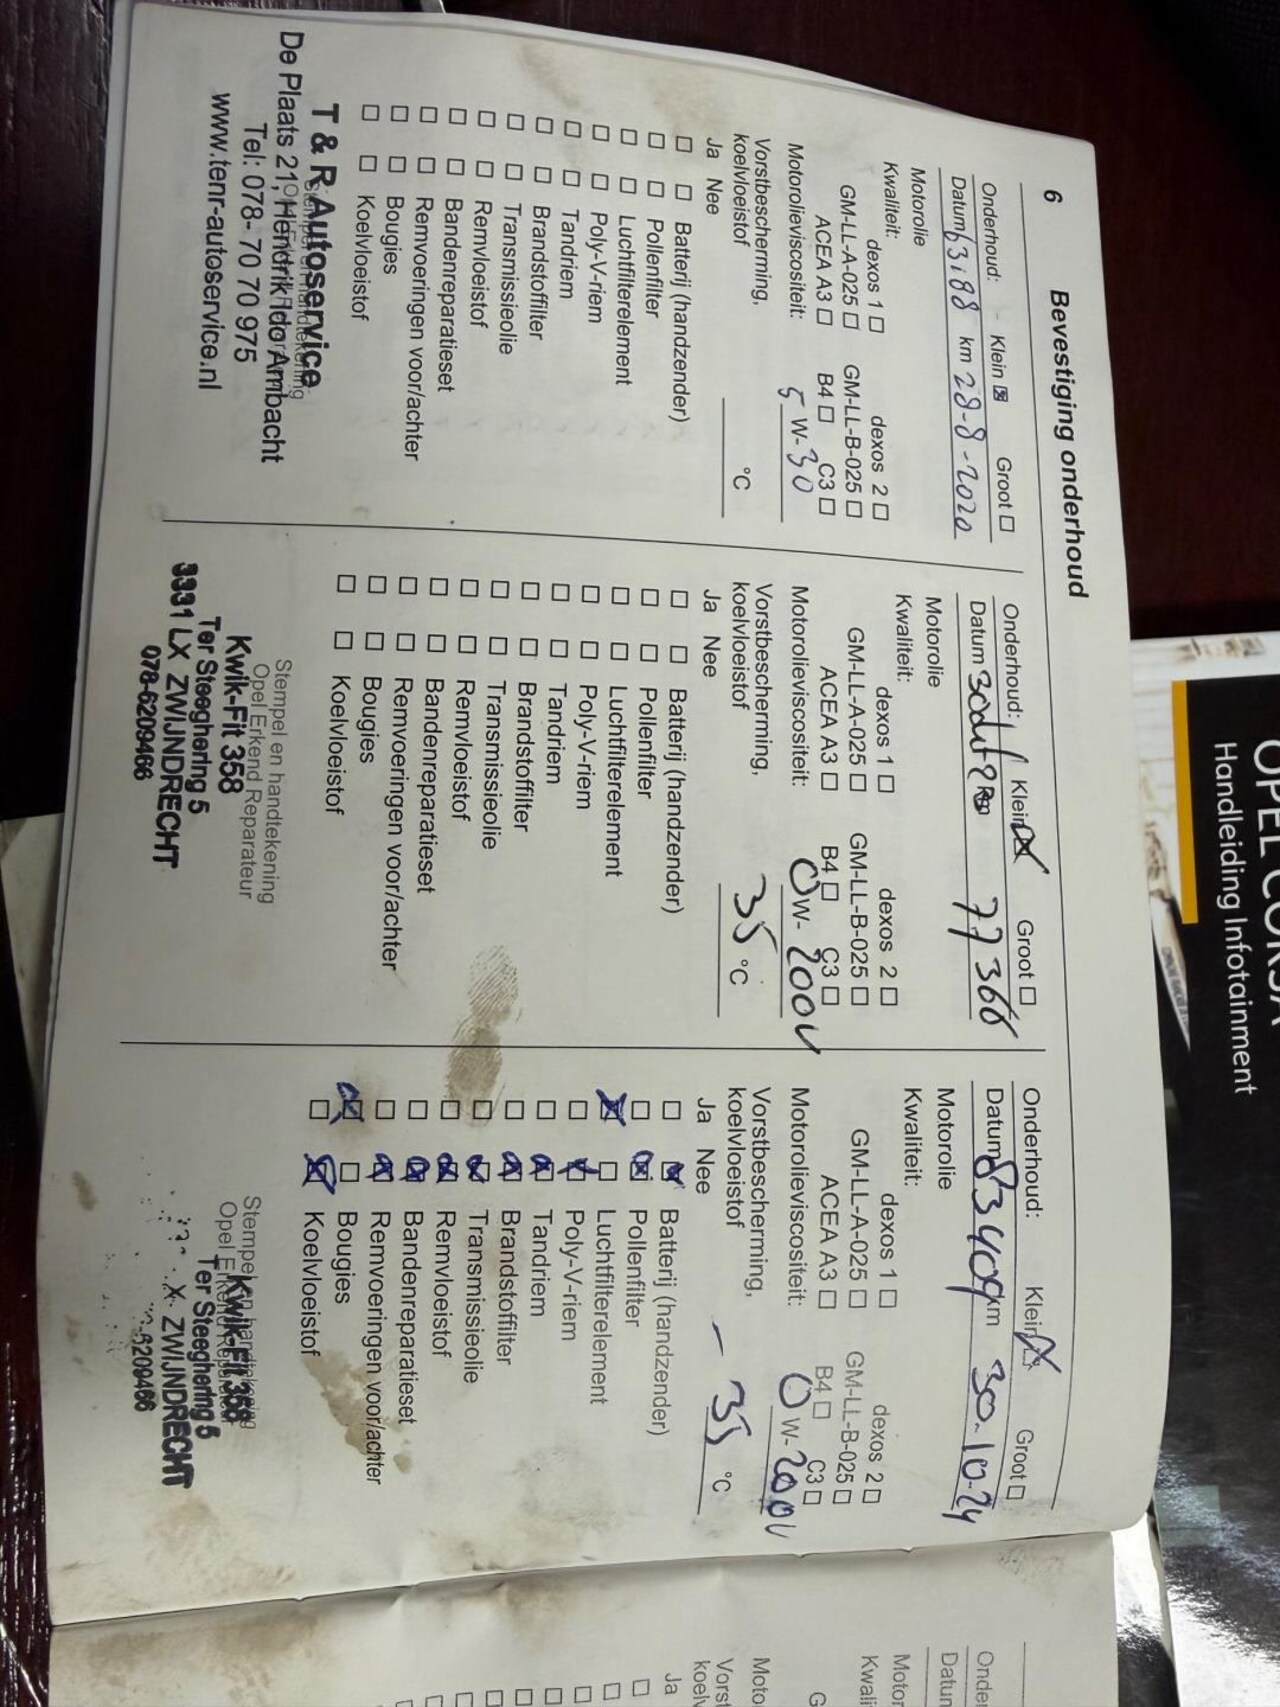 6 Bevestiging onderhoud
Onderhoud: Klein ☒ Groot ☐
Datum 63188 km 28-8-2020
Motorolie
Kwaliteit: dexos 1 ☐ dexos 2 ☐
GM-LL-A-025 ☐ GM-LL-B-025 ☐
ACEA A3 ☐ B4 ☐ C3 ☐
Motorolieviscositeit: 5 W-30
Vorstbescherming,
koelvloeistof °C
Ja Nee
☐ ☐ Batterij (handzender)
☐ ☐ Pollenfilter
☐ ☐ Luchtfilterelement
☐ ☐ Poly-V-riem
☐ ☐ Tandriem
☐ ☐ Brandstoffilter
☐ ☐ Transmissieolie
☐ ☐ Remvloeistof
☐ ☐ Bandenreparatieset
☐ ☐ Remvoeringen voor/achter
☐ ☐ Bougies
☐ ☐ Koelvloeistof
T & R Autoservice
De Plaats 21, Hendrik Ido Ambacht
Tel: 078- 70 70 975
www.tenr-autoservice.nl
Onderhoud: Klein ☒ Groot ☐
Datum 77366
Motorolie
Kwaliteit: dexos 1 ☐ dexos 2 ☐
GM-LL-A-025 ☐ GM-LL-B-025 ☐
ACEA A3 ☐ B4 ☐ C3 ☐
Motorolieviscositeit: 0 W-20
Vorstbescherming,
koelvloeistof 35 °C
Ja Nee
☐ ☐ Batterij (handzender)
☐ ☐ Pollenfilter
☐ ☐ Luchtfilterelement
☐ ☐ Poly-V-riem
☐ ☐ Tandriem
☐ ☐ Brandstoffilter
☐ ☐ Transmissieolie
☐ ☐ Remvloeistof
☐ ☐ Bandenreparatieset
☐ ☐ Remvoeringen voor/achter
☐ ☐ Bougies
☐ ☐ Koelvloeistof
Stempel en handtekening
Opel Erkend Reparateur
Kwik-Fit 358
Ter Steeghering 5
3331 LX ZWIJNDRECHT
078-6209466
Onderhoud: Klein ☒ Groot ☐
Datum 83409 km 30-10-24
Motorolie
Kwaliteit: dexos 1 ☐ dexos 2 ☐
GM-LL-A-025 ☐ GM-LL-B-025 ☐
ACEA A3 ☐ B4 ☐ C3 ☐
Motorolieviscositeit: 0 W-20
Vorstbescherming,
koelvloeistof -35 °C
Ja Nee
☐ ☒ Batterij (handzender)
☐ ☒ Pollenfilter
☒ ☐ Luchtfilterelement
☐ ☒ Poly-V-riem
☐ ☒ Tandriem
☐ ☒ Brandstoffilter
☐ ☒ Transmissieolie
☐ ☒ Remvloeistof
☐ ☒ Bandenreparatieset
☐ ☒ Remvoeringen voor/achter
☒ ☐ Bougies
☐ ☒ Koelvloeistof
Stempel en handtekening
Opel Erkend Reparateur
Kwik-Fit 358
Ter Steeghering 5
X ZWIJNDRECHT
6209466
OPEL CORSA
Handleiding Infotainment